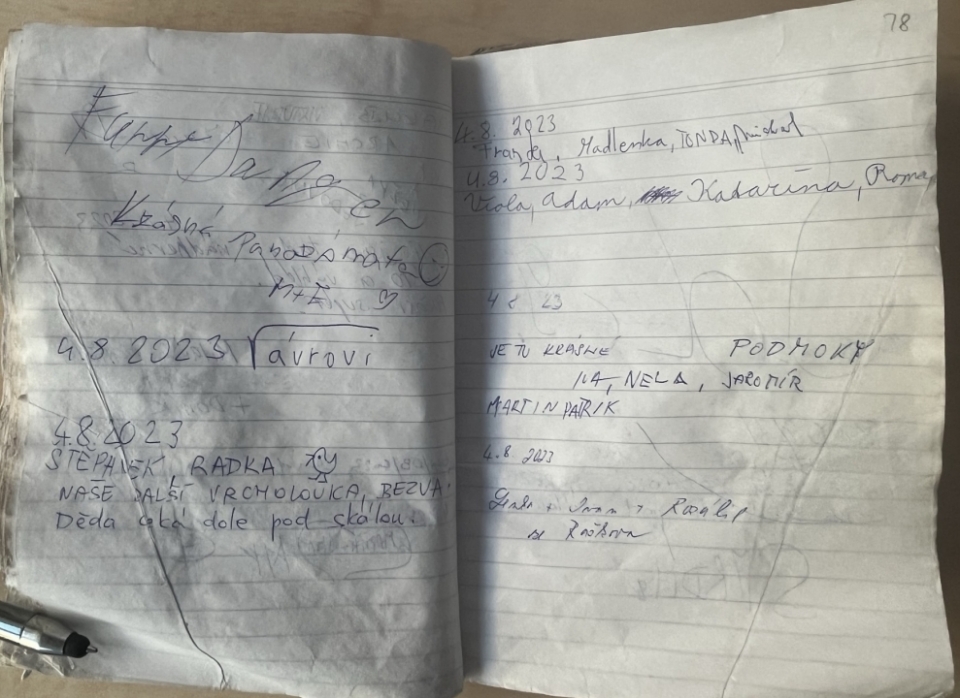 Krásná
M+E
4.8. 2023 Távrovi
4.8.2023
ŠTĚPÁNEK RADKA
NAŠE DALŠÍ VRCHOLOVKA, BEZVA!
Děda čeká dole pod skálou.
78
4.8. 2023
Franda, Madlenka, TONDA, michal
4.8. 2023
Viola, adam, Katarína, Roma,
4 8 23
JE TU KRÁSNĚ PODMOKY
IVA, NELA, JAROMÍR
MARTIN PATRIK
4.8. 2023